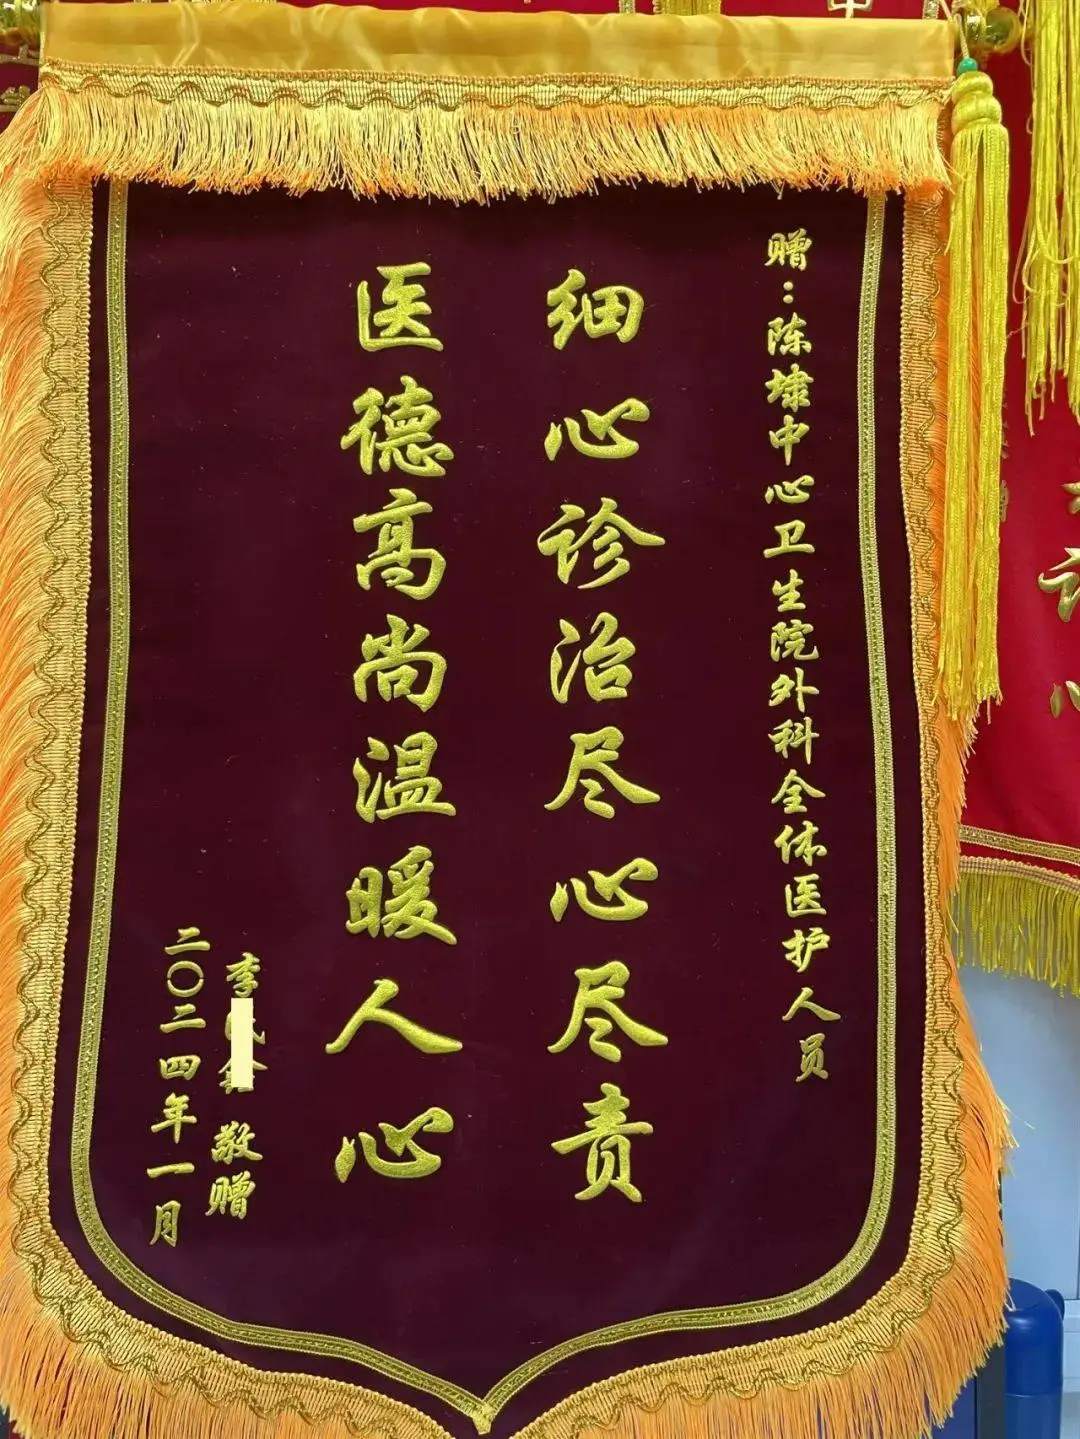 赠：陈埭中心卫生院外科全体医护人员
细心诊治尽心尽责
医德高尚温暖人心
李 鑫 敬赠
二〇二四年一月